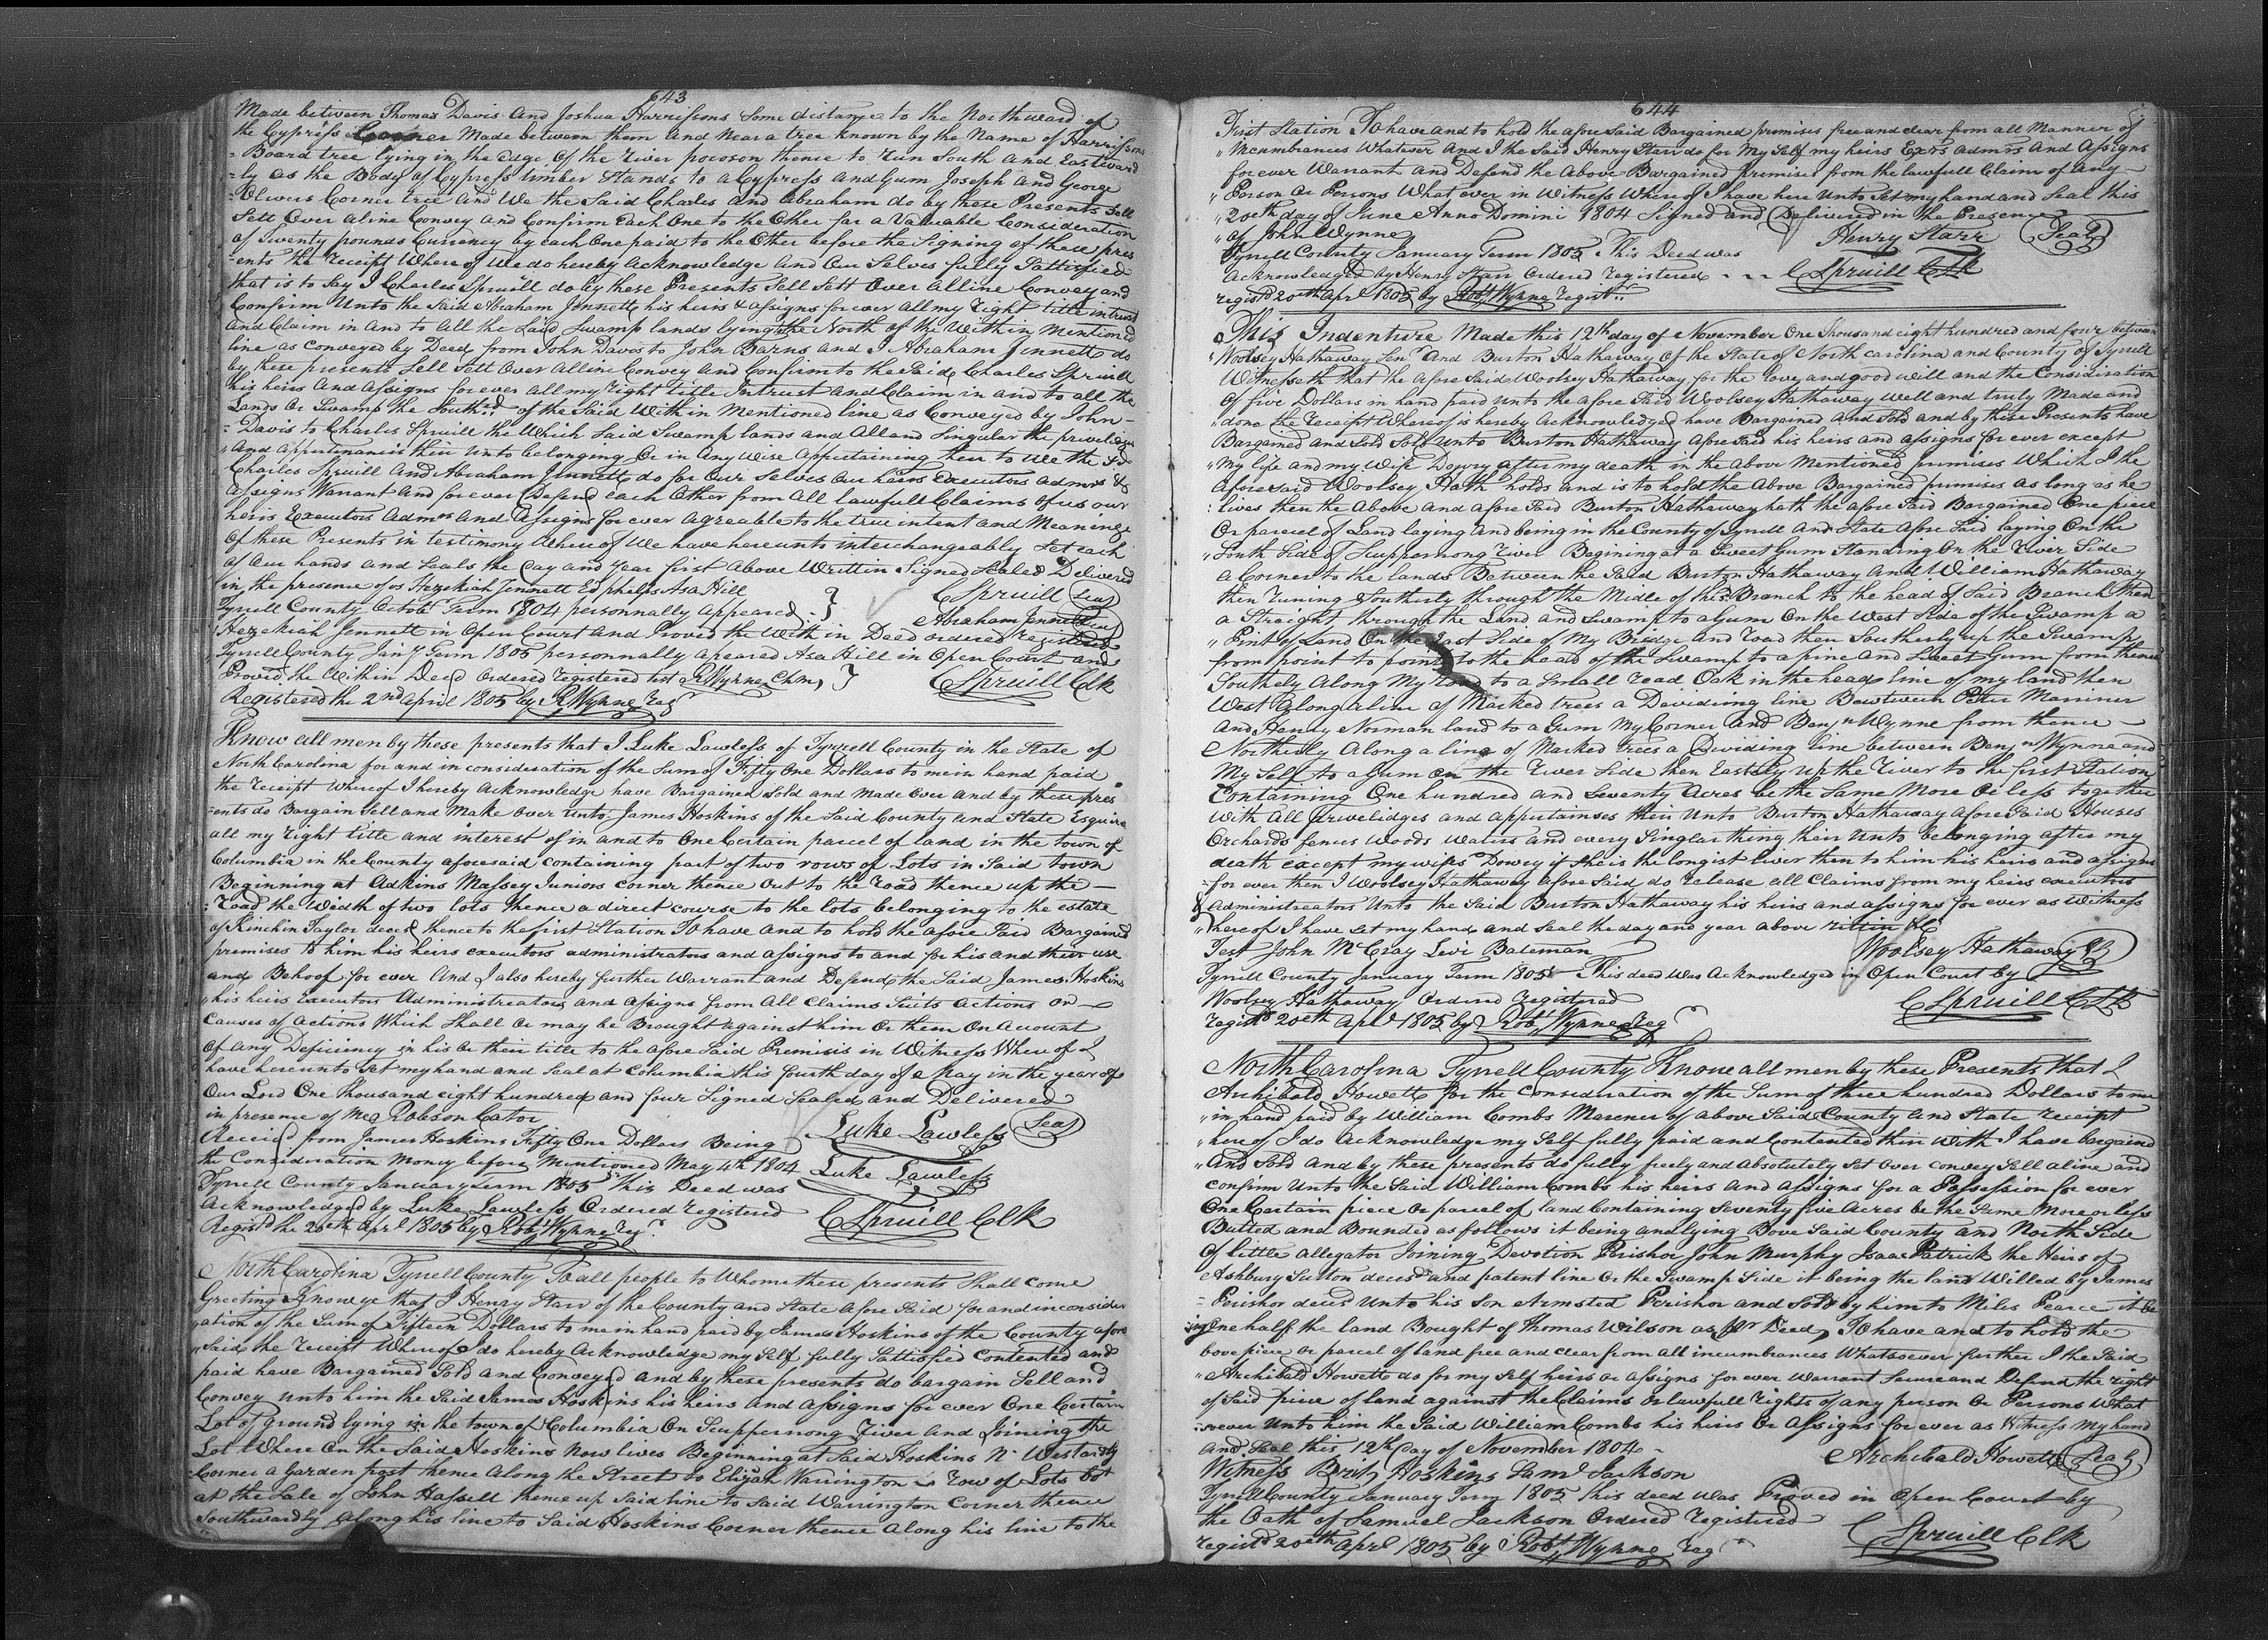 643
Made between Thomas Davis And Joshua Harrissons Some distance to the Northward of
the Cypress Corner Made between them and Near a tree known by the Name of Harrissons
= Board tree lying in the edge Of the river pocoson thence to run South and Eastward
=ly as the Body of Cypress timber Stands to a Cypress and Gum Joseph and George
=Olivers Corner tree And We the Said Charles and Abraham do by these Presents Sell
Sett Over aline Convey and Confirm Each One to the Other for a Valuable Consideration
of Twenty pounds Currency by each One paid to the Other before the Signing of these pres
=ents the receipt Where of We do hereby acknowledge and Our Selves fully Sattisfied
that is to Say I Charles Spruill do by these Presents Sell Sett Over alline Convey and
Confirm Unto the Said Abraham Jennett his heirs & assigns forever all my right title intrust
and Claim in and to All the Said Swamp lands lying the North of the Within Mentioned
line as Conveyed by Deed from John Davis to John Barns and I Abraham Jennett do
by these presents Sell Sett Over alline Convey and Confirm to the Said Charles Spruill
his heirs And assigns for ever all my right title Intrust and Claim in and to all the
Lands Or Swamp the South.d of the Said With in Mentioned line as Conveyed by John
= Davis to Charles Spruill the Which Said Swamp lands and All and Singular the priviliges
"And appurtenancis their unto belonging Or in Any Wise Appurtaining their to We the Sd
Charles Spruill And Abraham Jennett do for Our Selves Our heirs Executors admrs &
assigns Warrant And for ever Defend each Other from All lawfull Claims of us our
heris Executors Admrs And Assigns for ever Agreable to the true intent and Meaninge
Of these Presents in testimony Where of We have hereunto interchangeably Set each
of Our hands and Seals the Day and Year first Above Written Signed Sealed Delivered
in the presence of us Hezekiah Jennett Ed phelps Asa Hill
C Spruill Seal
Tyrrell County Octobr Term 1804 personnally Appeared
Abraham Jennett Seal
Hezekiah Jennett in Open Court And Proved the With in Deed ordered registered
Tyrrell County Jany Term 1805 personnally apeared Asa Hill in Open Court and
Proved the Within Deed Ordered registered test R Wynne Chm
C Spruill Clk
Registered the 2nd April 1805 by R Wynne Regr
Know all men by these presents that I Luke Lawless of Tyrrell County in the State of
North Carolina for and in consideration of the Sum of Fifty One Dollars to me in hand paid
the receipt Whereof I hereby Acknowledge have Bargained Sold and Made Over and by these pres
=ents do Bargain Sell and Make Over Unto James Hoskins of the Said County and State Esquire
all my right title and interest of in and to One Certain parcel of land in the town of
Columbia in the County aforesaid Containing part of two rows of Lots in Said town
Beginning at Adkins Massey Juniors corner thence Out to the road thence up the —
: road the Width of two lots thence a direct course to the lots belonging to the estate
of Kinchin Taylor deced thence to the first Station To have and to hold the afore Said Bargained
premises to him his heirs executors administrators and assigns to and for his and their use
and Behoof for ever And I also hereby further Warrant and Defend the Said James Hoskins
"his heirs Executors Administreators and assigns from All Claims Suits Actions or —
Causes of Actions Which Shall Or may be Brought against him Or them On Acount
Of any Deficiency in his Or their title to the afore Said Premisis in Witness Where of I
have hereunto Set my hand and Seal at Columbia this fourth day of May in the year of
Our Lord One Thousand eight hundred and four Signed Sealed and Delivered
in presence of Me Robson Cator
Luke Lawless Seal
Receiud from James Hoskins Fifty One Dollars Being
the Consideration Money before Mentioned May 4th 1804
Luke Lawless
Tyrrell County January Term 1805 This Deed was
Acknowledged by Luke Lawless Ordered registered
C Spruill Clk
Registd the 20eth Aprl 1805 by Robt Wynne regr
North Carolina Tyrrell County To all people to Whome these presents Shall come
Greeting Know ye that I Henry Starr of the County and State afore Said for and in consider
"ation of the Sum of Fifteen Dollars to me in hand paid by James Hoskins of the County afore
"Said the receipt Whereof I do hereby Acknowledge my Self fully Sattisfied Contented and
paid have Bargained Sold and Conveyed and by these presents do bargain Sell and
Convey unto him the Said James Hoskins his heirs and assigns for ever One Certain
Lot of ground lying in the town of Columbia On Scuppernong river And Joining the
Lot Where On the Said Hoskins Now lives Beginning at Said Hoskins N Westardly
Corner a Garden post thence along the Street to Elijah Warrington row of Lots bot
at the Sale of John Hassell thence up Said line to Said Warrington Corner thence
Southwardly along his line to Said Hoskins Corner thence along his line to the
644
First Station To have and to hold the afore Said Bargained premises free and clear from all Manner of
"Incumbrances Whatever And I the Said Henry Starr do for My Self my heirs Exrs Admrs And Assigns
for ever Warrant and Defend the Above Bargained premises from the lawfull Claim of Any —
" Person Or Persons What ever in Witness Where of I have here Unto Set my hand and Seal this
" 20eth day of June Anno Domini 1804 Signed and Delivered in the Presence
" of John Wynne
Henry Starr Seal
Tyrrell County January Term 1805 This Deed was
Acknowledged by Henry Starr Ordered registered
C Spruill Clk
registd 20eth Aprl 1805 by Robt Wynne regist.r
This Indenture Made this 12th day of November One Thousand eight hundred and four between
"Woolsey Hathaway Senr And Burton Hathaway Of the State of North Carolina and County of Tyrrell
Witnesseth that the afore Said Woolsey Hathaway for the love and good will and the Consideration
Of five Dollars in hand paid unto the afore Said Woolsey Hathaway Well and truly Made and
"done the receipt Whereof is hereby Acknowledged have Bargained And Sold and by these Presents have
Bargained and Sold Sold Unto Burton Hathaway afore Said his heirs and assigns for ever except
"My life and my Wife Dowry after my death in the above Mentioned premises Which I the
aforesaid Woolsey Hath holds and is to hold the Above Bargained premises as long as he
: lives then the Above and afore Said Burton Hathaway hath the afore Said Bargained One piece
Or parcel of Land laying And being in the County of Tyrrell And State Afore Said laying On the
"South Side of Scuppernong river Begining at a Sweet Gum Standing On the river Side
a Corner to the lands Between the Said Burton Hathaway And William Hathaway
then runing Southerly through the Midle of the Branch to the head of Said Branch then
a Straight through the Land and Swamp to a Gum On the West Side of the Swamp a
" Pint of Land On the East Side of My Bredge and road then Southerly up the Swamp
from point to point to the head of the Swamp to a pine and Sweet Gum from thence
Southely along My road to a Small read Oak in the head line of my land then
West along a line of Marked trees a Deviding line Bewtween Peter Marriner
and Henry Norman land to a Gum My Corner and Benjn Wynne from thence —
Northerdly Along a line of Marked trees a Deviding line between Benjn Wynne and
My Self to a Gum on the river Side then Easterly up the river to the first Station
Containing One hundred and Seventy Acres be the Same More Or less together
With All privelidges and appurtainses their unto Burton Hathaway afore Said Houses
Orchards fences Woods Waters and every Singlar thing their unto belonging after my
death except my wifes Dowey if She is the longist liver then to him his heirs and assigns
for ever then I Woolsey Hathaway afore Said do release all Claims from my heirs executors
& administreators Unto the Said Burton Hathaway his heirs and assigns for ever as Witness
" hereof I have Set my hand and Seal the day and year above ritten &C
Test John McCray Levi Bateman
Woolsey Hathaway
Tyrrell County January Term 1805 This deed Was Acknowledged in Open Court by
Woolsey Hathaway Ordered registered
C Spruill Clk
registd 20eth Aprl 1805 by Robt Wynne Reg
North Carolina Tyrrell County Know all men by these Presents that I
Archibald Howett for the Consideration of the Sum of three hundred Dollars to me
"in hand paid by William Combs Marener of above Said County and State receipt
"here of I do acknowledge my Self fully paid and Contented thire With I have bargaind
"And Sold And by these presents do fully freely and absolutely Set Over convey Sell aline and
confirm Unto the Said William Combs his heirs And Assigns for a Possession for ever
One Certain piece Or parcel of land Containing Seventy five Acres be the Same More or less
Butted and Bounded as follows it being and lying Bove Said County and North Side
Of little allegator Joining Devotion Perisho John Murphy Isaac Patrick the Heirs of
Ashbury Sutton decesd and patent line Or the Swamp Side it being the land Willed by James
= Perishor decesd Unto his Son Armsted Perishor and Sold by him to Miles Pearce it be
ing One half the land Bought of Thomas Wilson as pr Deed To have and to hold the
bove piece Or parcel of land free and clear from all incumbrances Whatsoever further I the Said
"Archibald Howett do for my Self heirs or assigns for ever Warrant Secure and Defend the right
of Said piece of land against the Claims Or lawfull rights of any person Or Persons What
=ever Unto him the Said William Combs his heirs Or Assigns for ever as Witness My hand
And Seal this 12th Day of November 1804
Archibald Howett Seal
Witness Hoskins Saml Jackson
Tyrrell County January Term 1805 this deed was Proved in Open Court by
the Oath of Samuel Jackson Ordered registered
C Spruill Clk
registd 20eth Aprl 1805 by Robt Wynne reg